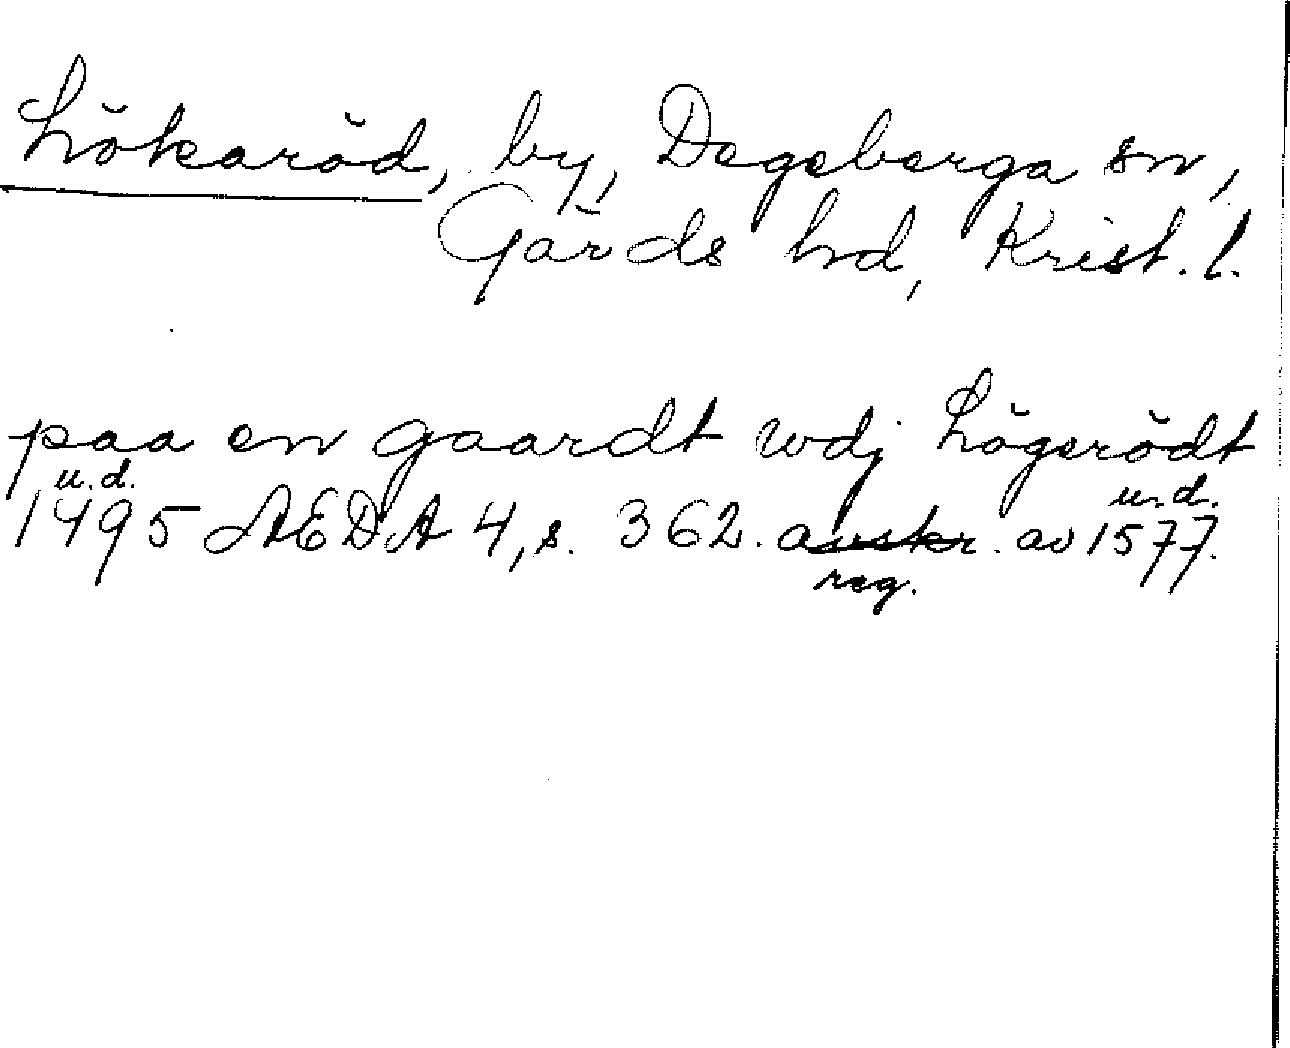 Lökaröd, by, Degeberga sn,
Gärds hd, Krist. l.
paa en gaardt wdj Lögerödt
u.d. u.d.
1495 ÆDA 4, s. 362. avskr. av 1577.
reg.